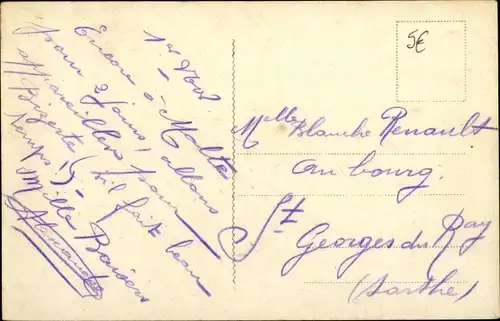 1er Nov.
Encore à Malte
pour 2 jours, allons
appareiller pour
Bizerte (s'il fait beau
temps). -
Mille Baisers
Alexandre
5€
Melle Blanche Renault
au bourg.
St Georges du Ray
(Sarthe)